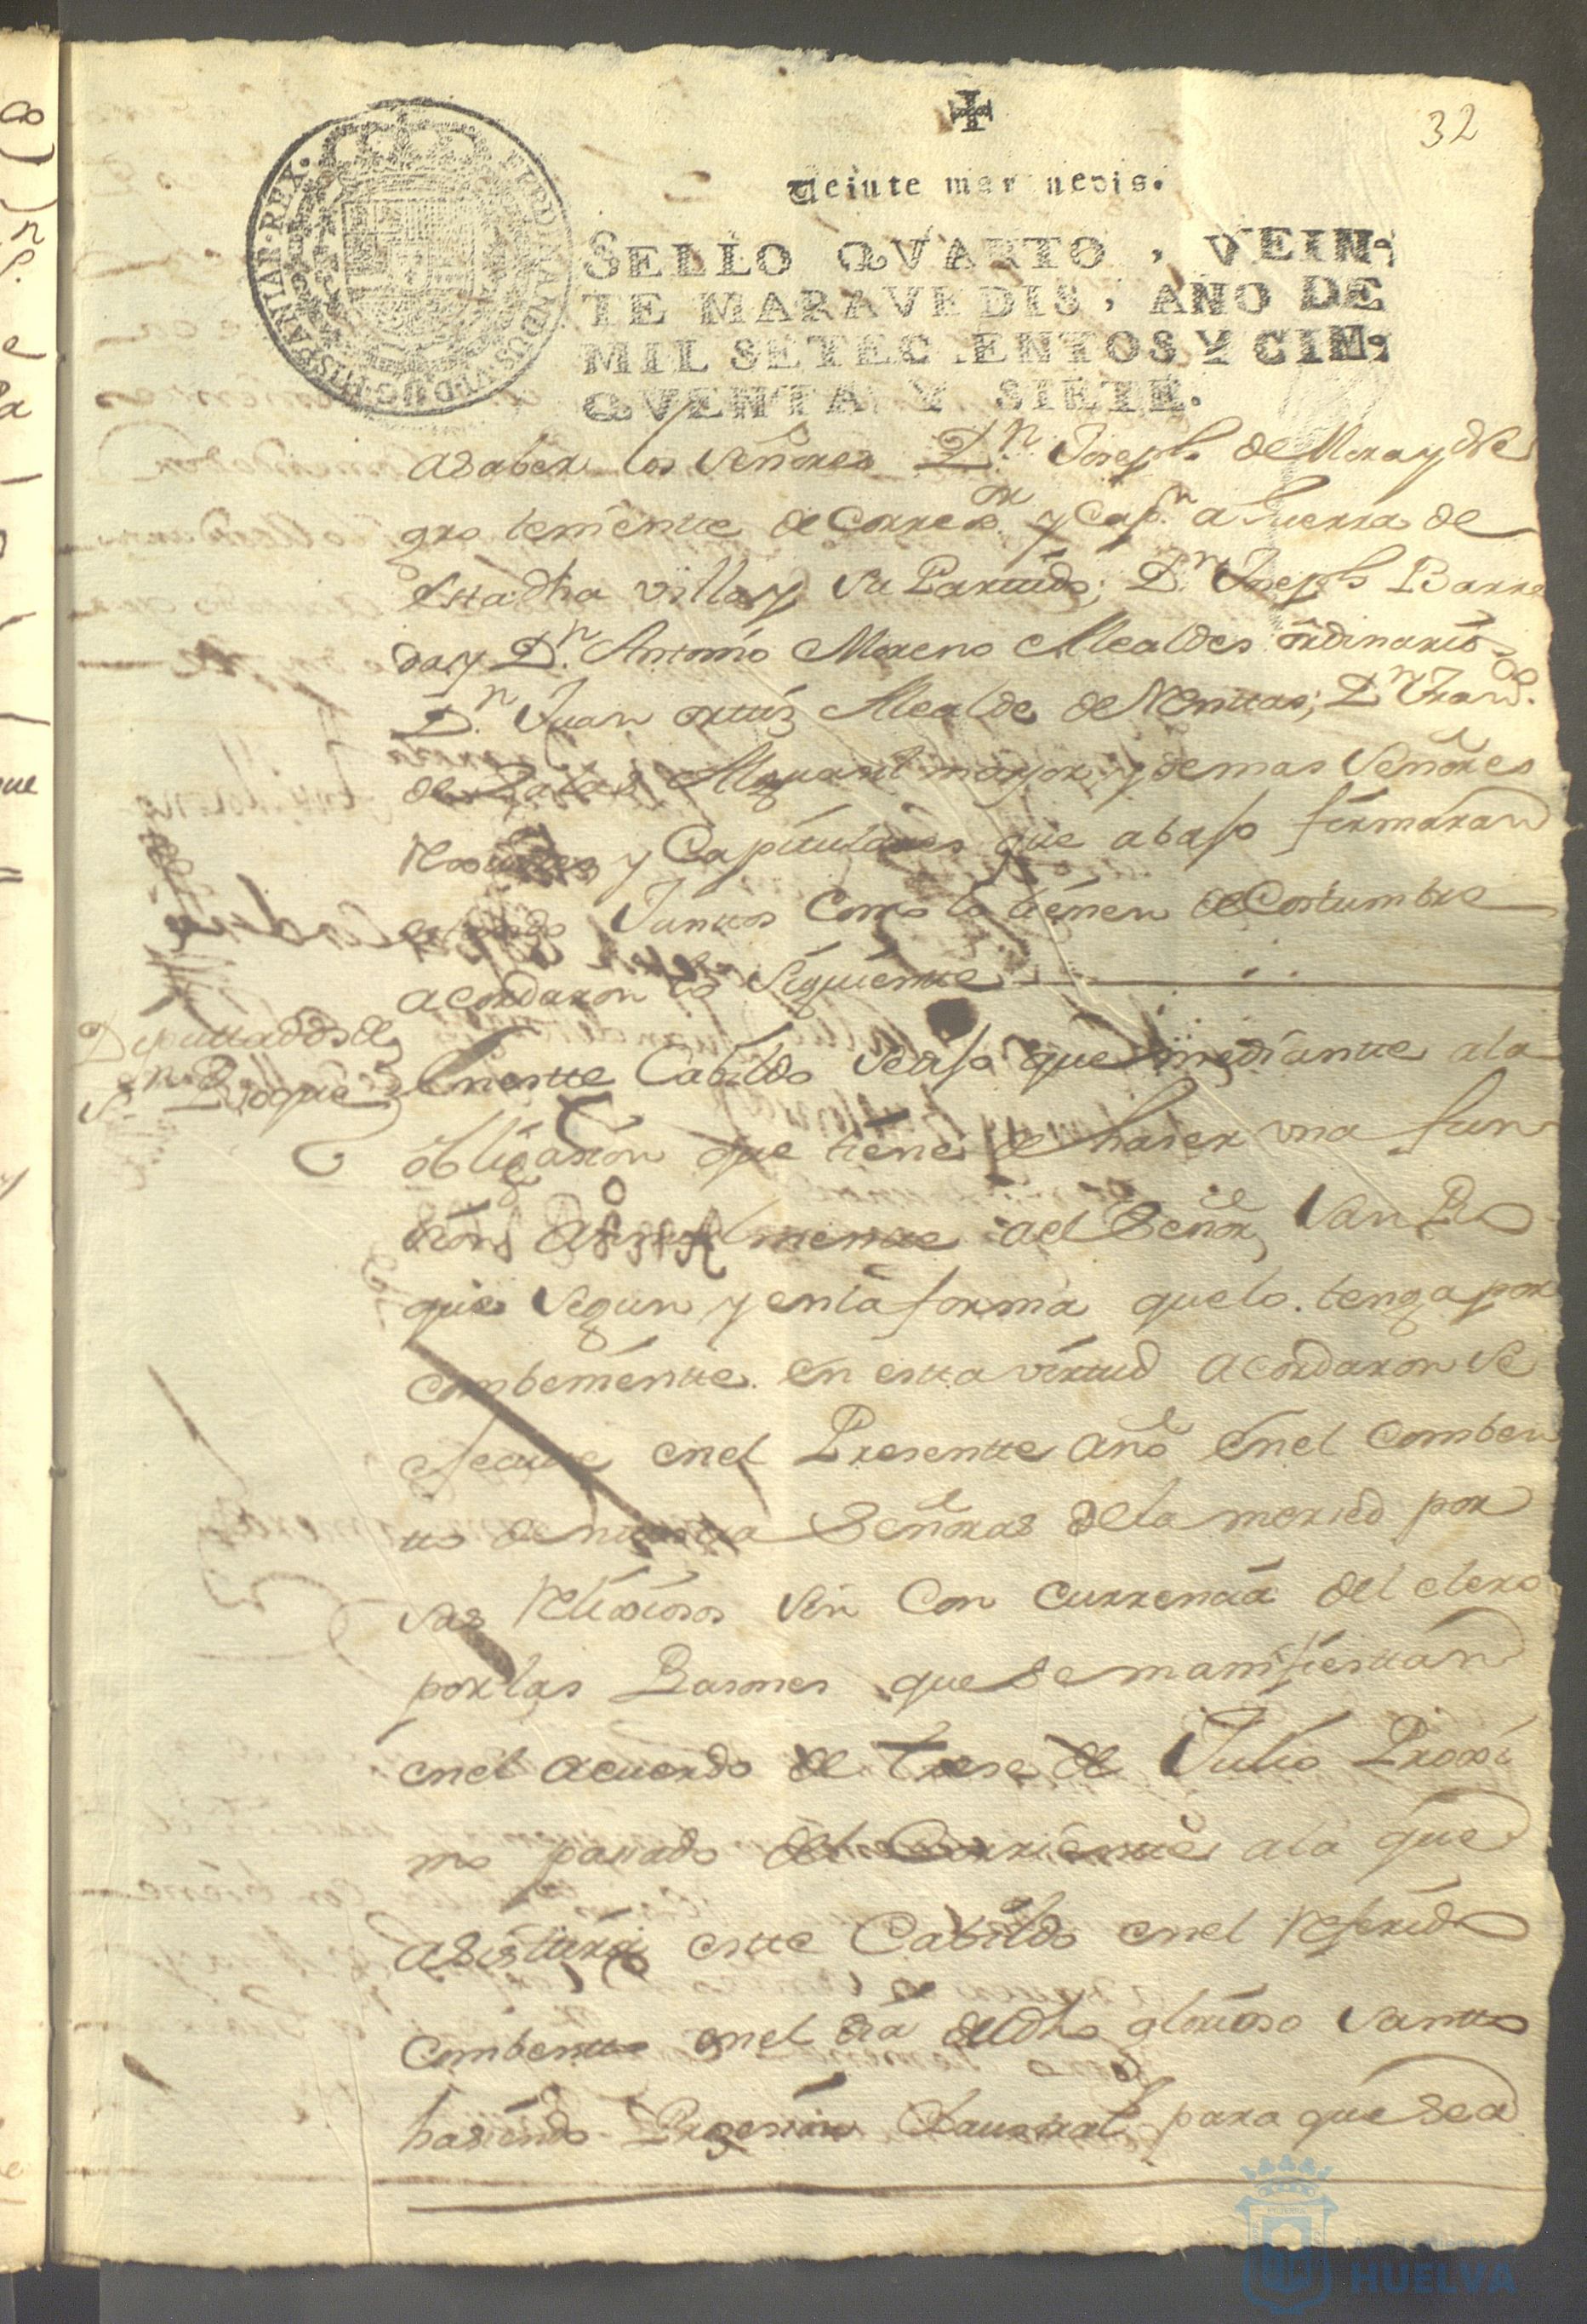 32
Veinte maravedis.
SELLO QVARTO, VEIN-
TE MARAVEDIS, AÑO DE
MIL SETECIENTOS Y CIN-
QVENTA Y SIETE.
FERDINANDUS·VI·D·G·HISPANIAR·REX·
asaber los Señores Dn. Joseph de Mora y de
gro teniente de Correxor. y Capn. a Guerra de
esta dha villa y su Partido; Dn. Joseph Barre
da y Dn. Antonio Moreno Alcaldes ordinarios
Dn. Juan ortiz Alcalde de Renttas; Dn. Franco.
de Alguasil mayor y demas Señores
y Capitulares que abajo firmaran
estando Junttos como lo tienen de Costumbre
acordaron lo Siguientte
Diputtados de
Sn. Roque
Enestte Cabildo se dijo que mediantte ala
obligasion que tiene de haser una fun
sion Annualmentte ael Señor San Ro
que Segun y enla forma quelo tenga por
combenientte en estta virttud acordaron se
efecutte enel Presentte año Enel comben
tto de nuestra Señoras dela mersed por
sus Relixiosos sin Con currencia del clero
por las Rasones que se manifiesttan
enel acuerdo de trese de Julio Proxi
mo pasado del Corrientte ala que
asisttira estte Cabildo enel referido
combentto enel dia deldho glorioso Santto
hasiendo Prosesion Claustral para que sea
HUELVA